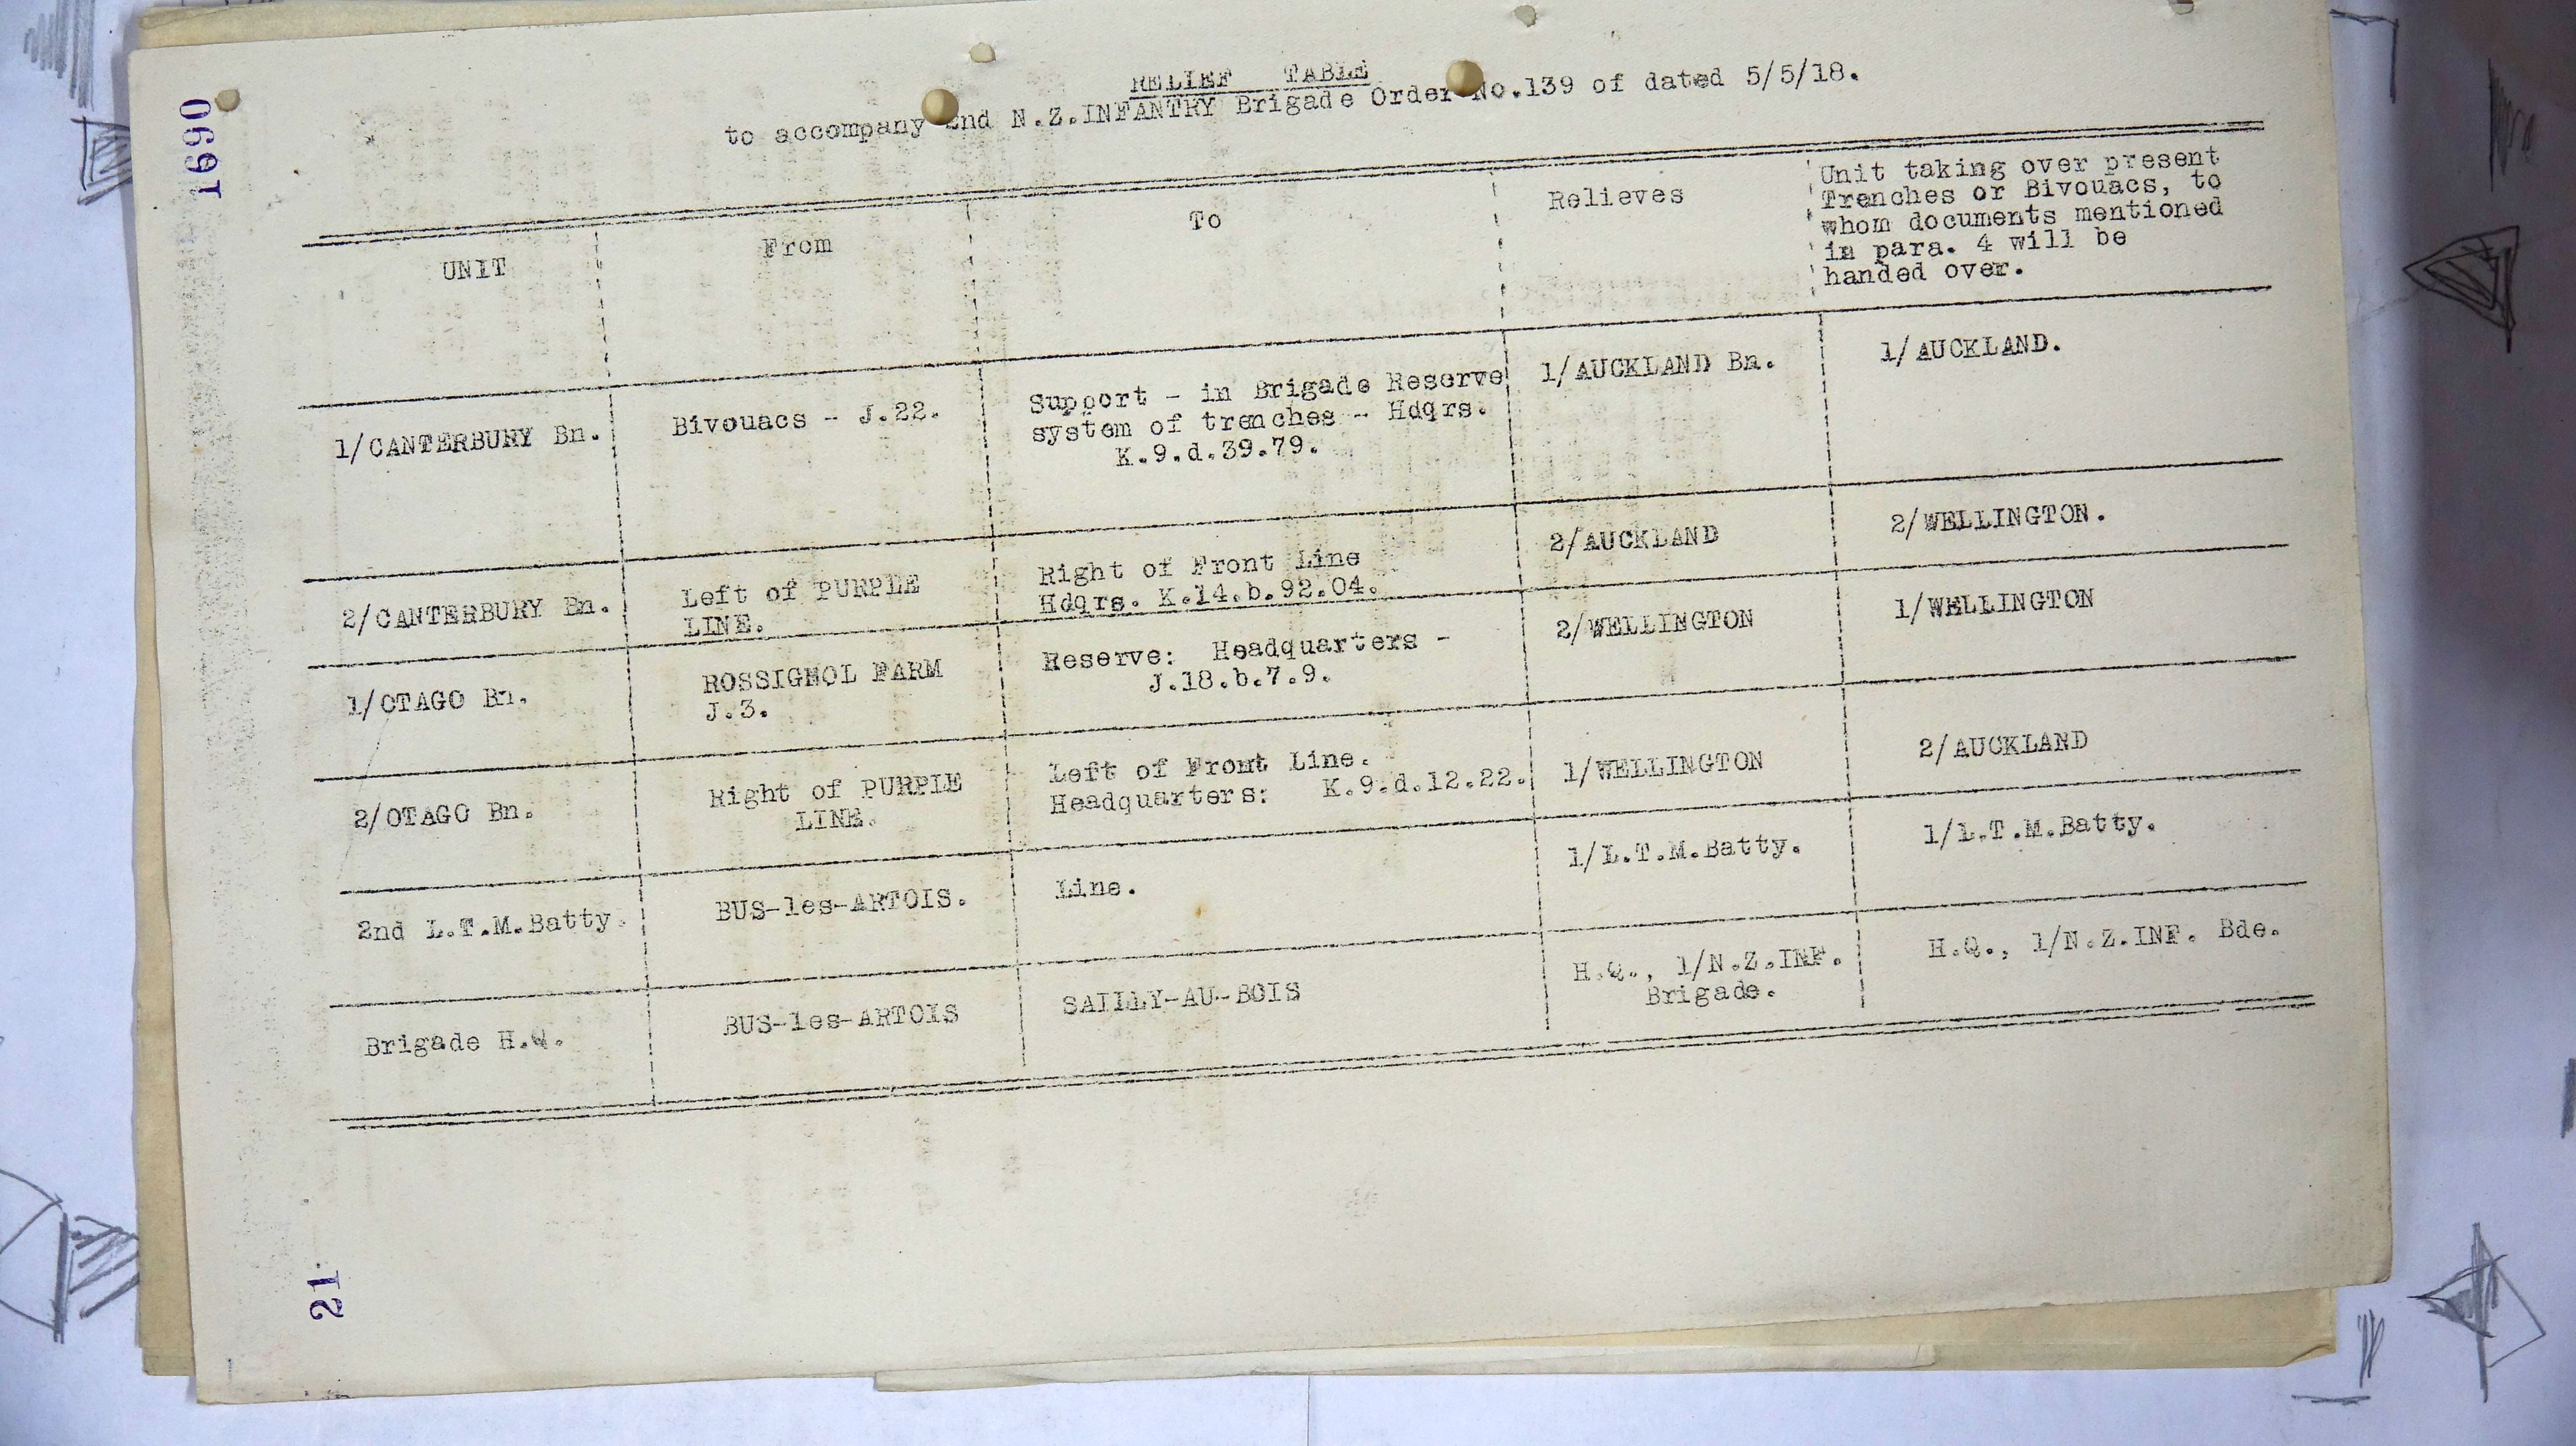 RELIEF TABLE
to accompany 2nd N.Z.INFANTRY Brigade Order No.139 of dated 5/5/18.
UNIT
From
To
Relieves
Unit taking over present
Trenches or Bivouacs, to
whom documents mentioned
in para. 4 will be
handed over.
1/CANTERBURY Bn.
Bivouacs - J.22.
Support - in Brigade Reserve
system of trenches - Hdqrs.
K.9.d.39.79.
1/AUCKLAND Bn.
1/AUCKLAND.
2/CANTERBURY Bn.
Left of PURPLE
LINE.
Right of Front Line
Hdqrs. K.14.b.92.04.
2/AUCKLAND
2/WELLINGTON.
1/OTAGO Bn.
ROSSIGNOL FARM
J.3.
Reserve: Headquarters -
J.18.b.7.9.
2/WELLINGTON
1/WELLINGTON
2/OTAGO Bn.
Right of PURPLE
LINE.
Left of Front Line.
Headquarters: K.9.d.12.22.
1/WELLINGTON
2/AUCKLAND
2nd L.T.M.Batty.
BUS-les-ARTOIS.
Line.
1/L.T.M.Batty.
1/L.T.M.Batty.
Brigade H.Q.
BUS-les-ARTOIS
SAILLY-AU-BOIS
H.Q., 1/N.Z.INF.
Brigade.
H.Q., 1/N.Z.INF. Bde.
1690
21